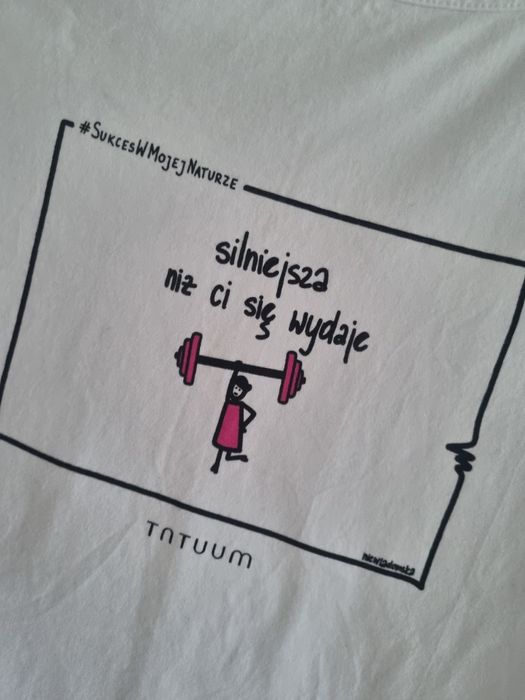 #SukcesWMojejNaturze
silniejsza
niż ci się wydaje
TATUUM
niewiadomska